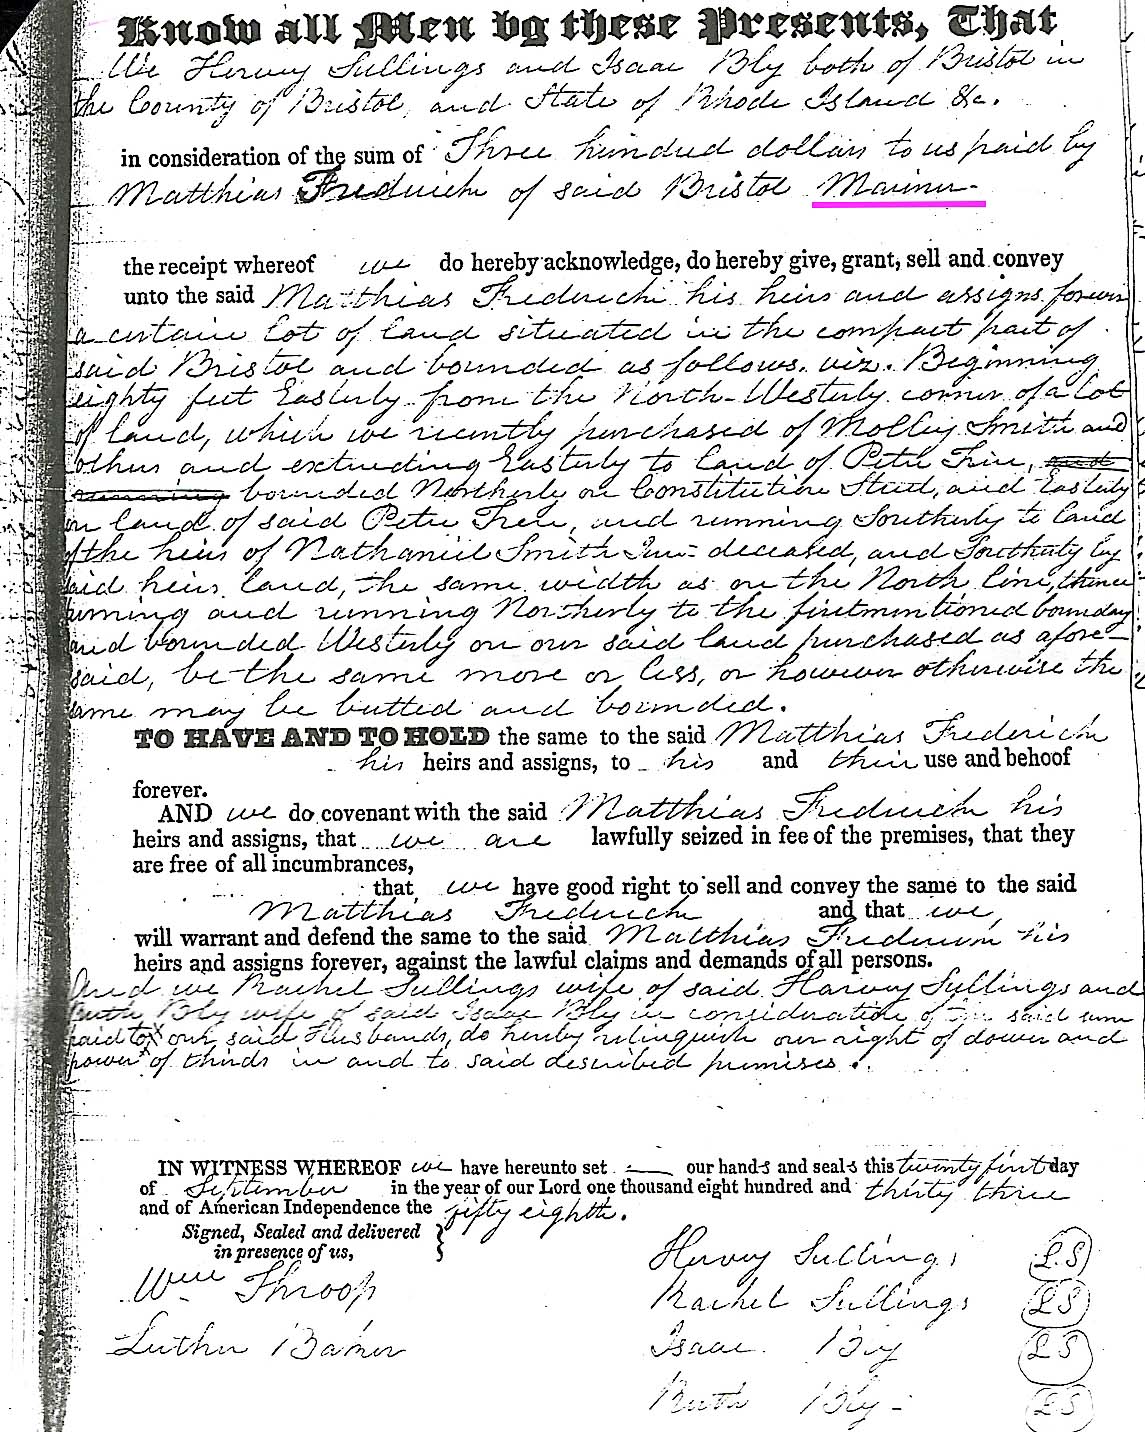 Know all Men by these Presents, That
We Hervey Sullings and Isaac Bly both of Bristol in
the County of Bristol, and State of Rhode Island &c.
in consideration of the sum of Three hundred dollars to us paid by
Matthias Frederich of said Bristol Mariner-
the receipt whereof we do hereby acknowledge, do hereby give, grant, sell and convey
unto the said Matthias Frederich his heirs and assigns forever
a certain lot of land situated in the compact part of
said Bristol and bounded as follows. viz. Beginning
eighty feet Easterly from the North-Westerly corner of a lot
of land, which we recently purchased of Molley Smith and
others and extending Easterly to land of Peter Free, and
running bounded Northerly on Constitution Street, and Easterly
on land of said Peter Free, and running Southerly to land
of the heirs of Nathaniel Smith Jun= deceased, and Southerly by
said heirs land, the same width as on the North line, thence
turning and running Northerly to the firstmentioned bounday
and bounded Westerly on our said land purchased as afore-
said, be the same more or less, or however otherwise the
same may be butted and bounded.
TO HAVE AND TO HOLD the same to the said Matthias Frederich
his heirs and assigns, to his and their use and behoof
forever.
AND we do covenant with the said Matthias Frederich his
heirs and assigns, that we are lawfully seized in fee of the premises, that they
are free of all incumbrances,
that we have good right to sell and convey the same to the said
Matthias Frederich and that we
will warrant and defend the same to the said Matthias Frederich his
heirs and assigns forever, against the lawful claims and demands of all persons.
And we Rachel Sullings wife of said Harvey Sullings and
Ruth Bly wife of said Isaac Bly in consideration of the said sum
paid to our said Husbands, do hereby relinquish our right of dower and
power of thirds in and to said described premises.
IN WITNESS WHEREOF we have hereunto set our hands and seals this twenty first day
of September in the year of our Lord one thousand eight hundred and thirty three
and of American Independence the fifty eighth.
Signed, Sealed and delivered
in presence of us,
Hervey Sullings LS
Wm Throop
Rachel Sullings LS
Luther Baker
Isaac Bly LS
Ruth Bly - LS